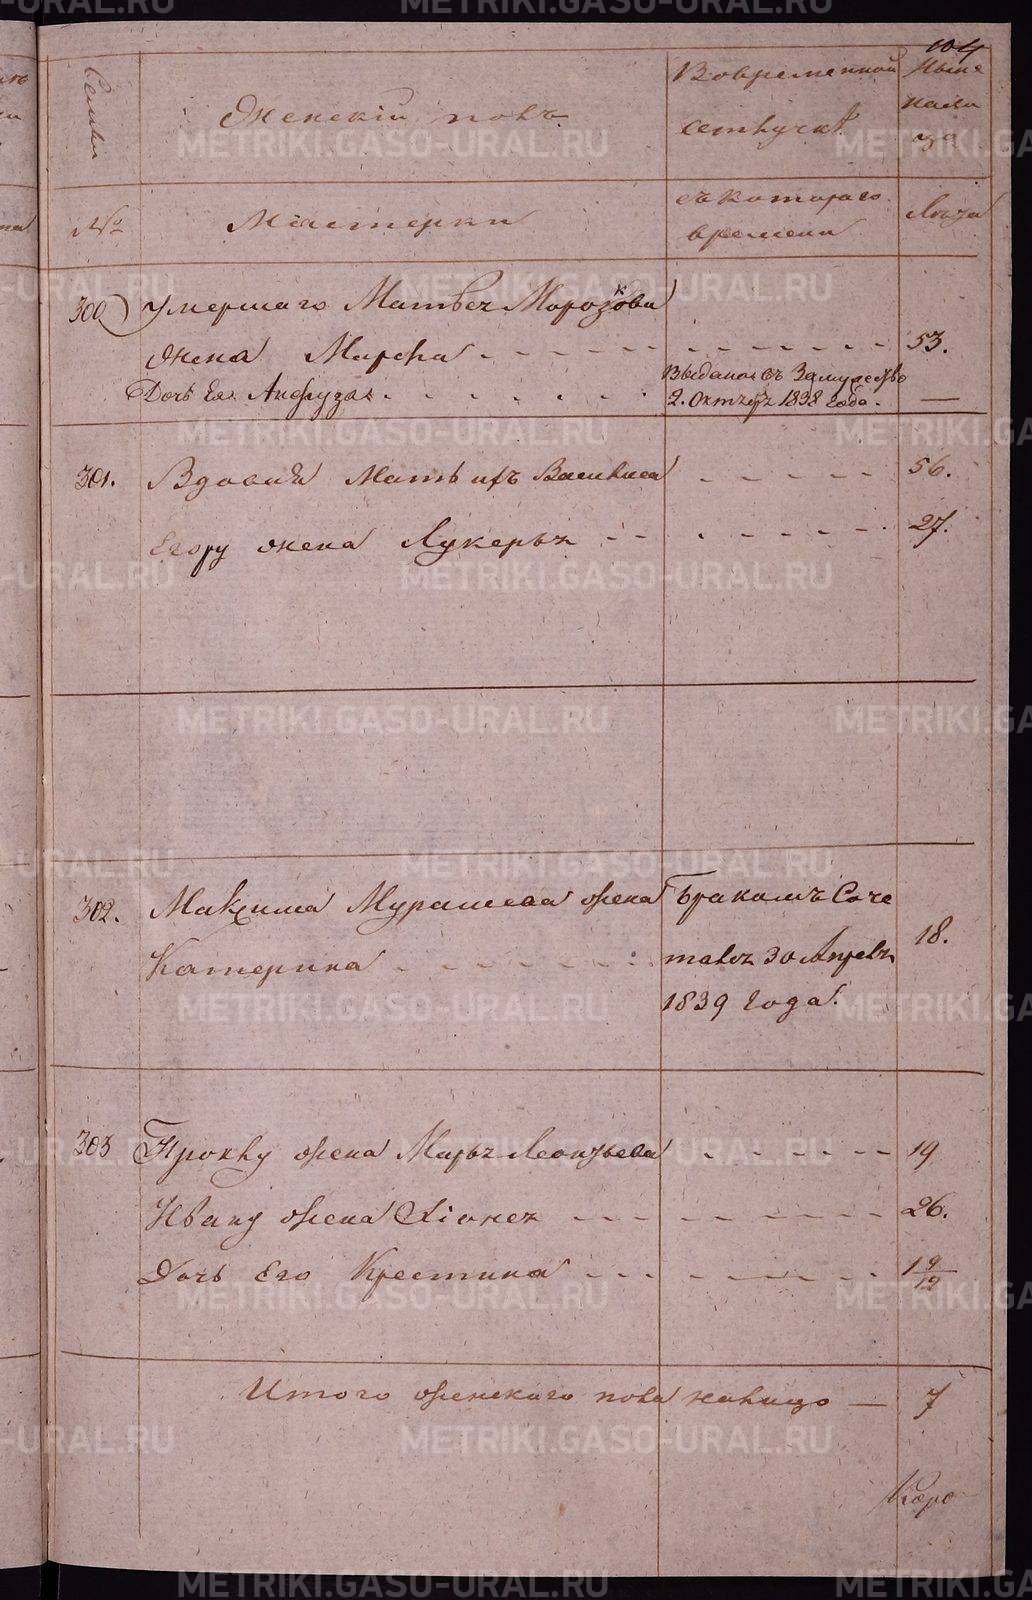 104
Семьи
Женскій полъ
Во временной
отлучкѣ
Ныне
на лицо
№
Мастерки
съ котораго
времени
Лѣта
300) Умершаго Матвея Морозкова
жена Марфа 53.
Дочь Ея Анфуза Выдана въ Замужество
2. Октября 1838 Года. —
301. Вдовий Мать ихъ Василиса 56.
Егору жена Лукерья 27.
302. Максима Мурашева жена Бракомъ Соче
Катерина талъ 30 Апреля 18.
1839 Года.
303 Прокѣу жена Марья Леонтьева 19
Ивану жена Хіонея 26.
Дочь Его Крестина 1 9/12
Итого женскаго пола налицо — 7
METRIKI.GASO-URAL.RU